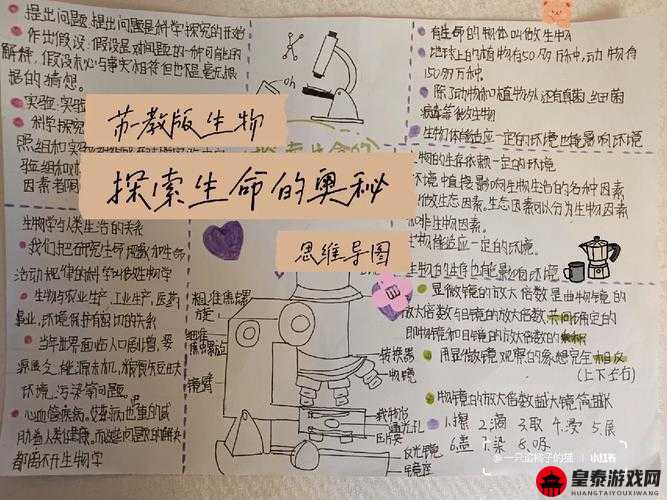 提出问题:提出问题是科学探究的开始
作出假设:假设是对问题的一种可能的
解释,假设未必与事实相符但也是毫无根
据的猜想。
实验:实验
科学探究
照组和实
验组和
因素老同
苏教版生物
探索生命的奥秘
思维导图
有生命的物体叫做生物
地球上的植物有50多万种,动物有
150多万种。
除了动物和植物外还有真菌、细菌
病毒等微生物
生物体能适应一定的环境也能影响环境
生物的生存依赖一定的环境
环境中直接影响生物生活的各种因素
做生态因素。生态因素可以分为生物因素
和非生物因素。
生物能适应一定的环境。
生物的生存也能影响环境
生物学与人类生活的关系
我们把研究生命现象和生命
活动规律的科学叫做生物学
生物与农业生产、工业生产、医药
事业、环境保护有密切的关系
当今世界面临人口剧增、资
源匮乏、能源危机、粮食
环境污染等问题。
心血管疾病、艾滋病也重的威
胁着人类健康,而这些问题的解决
都离不开生物学
粗准焦螺
旋
细准
焦螺旋
镜臂
转换器
物镜
载物台
通光孔
压片夹
反光镜
镜座
显微镜的放大倍数是由物镜的
放大倍数与目镜的放大倍数共同确定的
即物镜和目镜的放大倍数的乘积
用显微镜观察的象想完全相反
(上下左右)
物镜的放大倍数越大镜筒越长
1.擦 2.滴 3.取 4.浸 5.展
6.盖 7.染 8.吸
小红书
皇泰游戏网
HUANGTAIYOUXIWANG